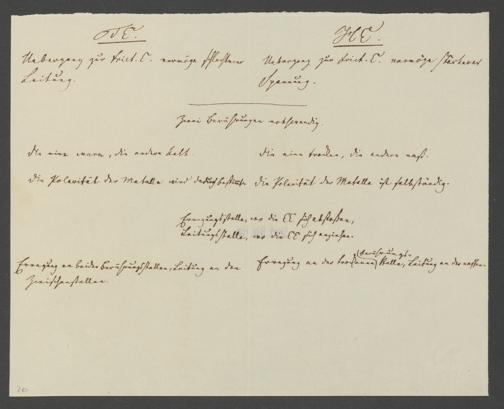 ThE. HE.
Uebergang zur Frict. E. vermöge schlechterer
Leitung.
Uebergang zur Frict. E. vermöge stärkerer
Spannung.
Zwei Berührungen nothwendig.
Die eine warm, die andere kalt.
Die eine trocken, die andere naß.
Die Polarität der Metalle wird dadurch bestimmt.
Die Polarität der Metalle ist selbständig.
Erregungsstelle, wo die EE sich abstoßen,
Leitungsstelle, wo die EE sich anziehen.
Erregung an beiden Berührungsstellen, Leitung an den
Zwischenstellen.
Berührungs-
Erregung an der trockenen Stelle, Leitung an der nassen.